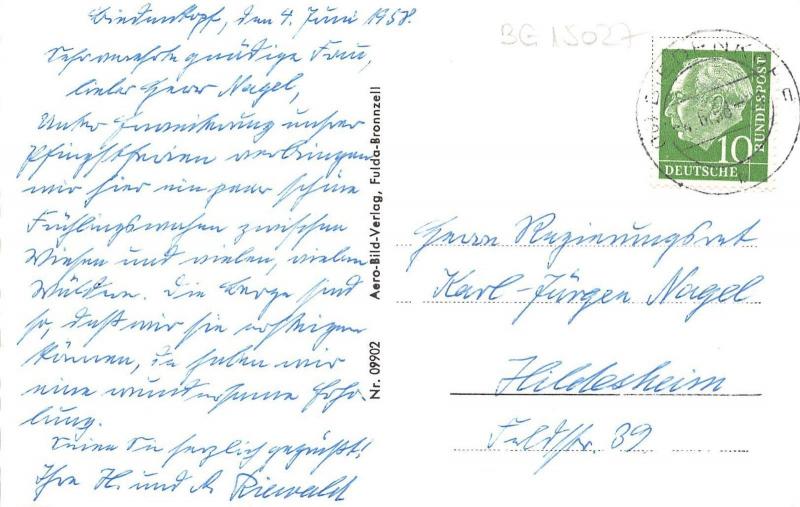 Biedenkopf, den 4. Juni 1958.
Sehr verehrte gnädige Frau,
lieber Herr Nagel,
Unter Erweiterung unsrer
Pfingstferien verbringen
wir hier ein paar schöne
Frühlingswochen zwischen
Wiesen und vielen, vielen
Wäldern. Die Berge sind
so, daß wir sie ersteigen
können, da haben wir
eine wundersame Erho-
lung.
Seien Sie herzlich gegrüßt!
Ihre H. und A. Riewald
Nr. 09902 Aero-Bild-Verlag, Fulda-Bronnzell
BG 15027
BIEDENKOPF
10
DEUTSCHE
BUNDESPOST
Herrn Regierungsrat
Karl-Jürgen Nagel
Hildesheim
Feldstr. 39